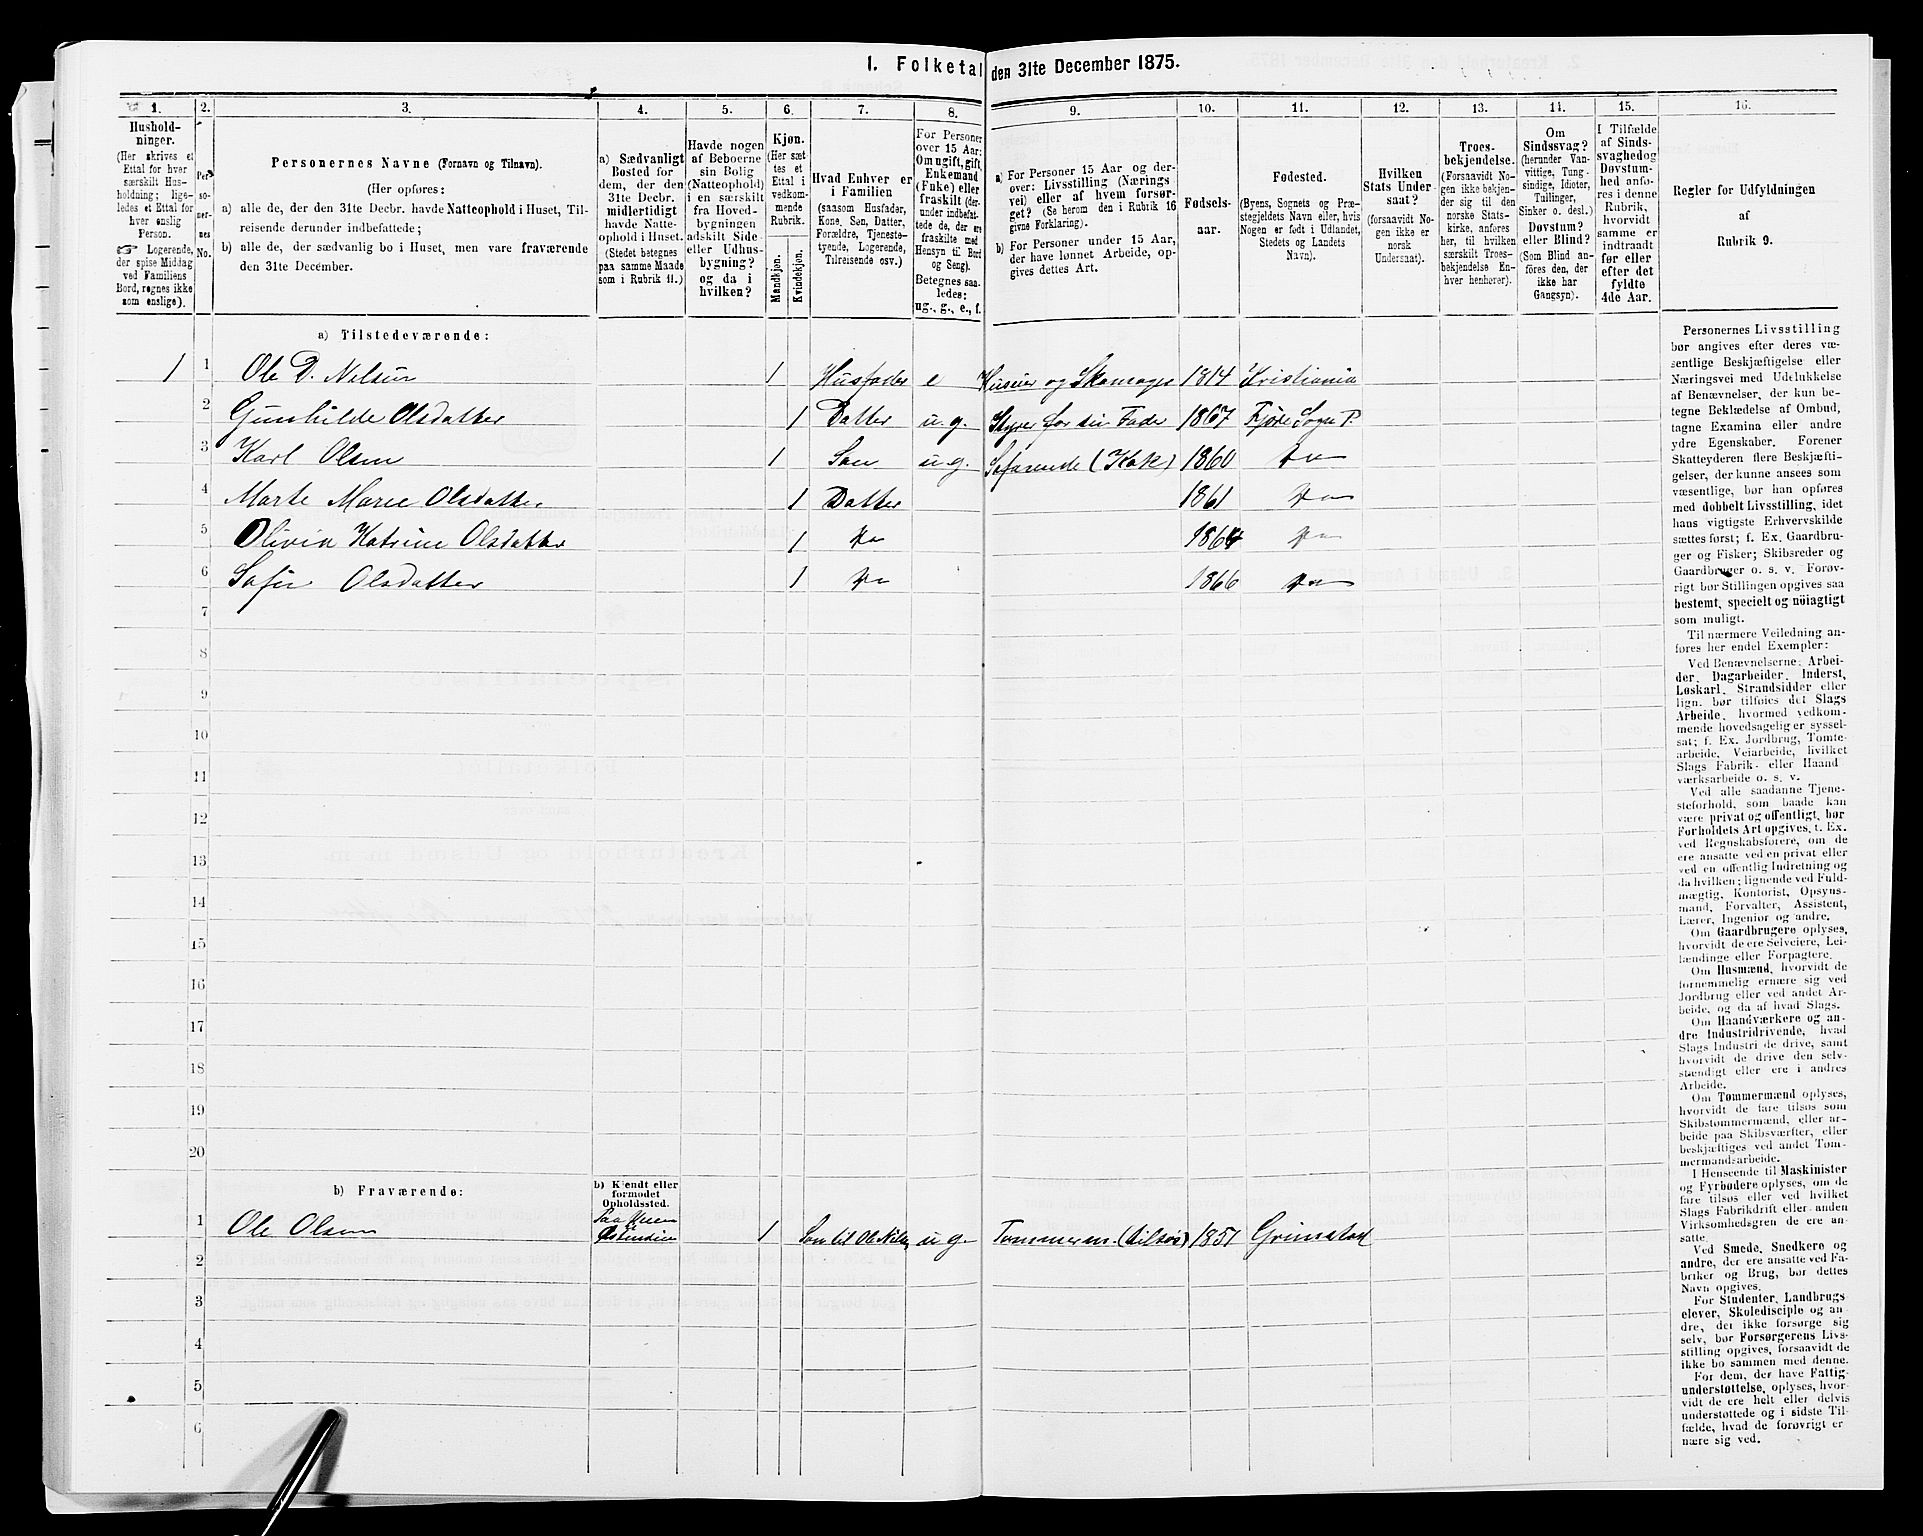 1. Folketal den 31te December 1875.
1. 2. 3. 4. 5. 6. 7. 8. 9. 10. 11. 12. 13. 14. 15. 16.
Hushold-
ninger.
(Her skrives et
Ettal for hver
særskilt Hus-
holdning; lige-
ledes et Ettal for
hver enslig
Person.
☞ Logerende,
der spise Middag
ved Familiens
Bord, regnes ikke
som enslige).
Per
so-
ner-
nes
No.
Personernes Navne (Fornavn og Tilnavn).
(Her opføres:
a) alle de, der den 31te Decbr. havde Natteophold i Huset, Til-
reisende derunder indbefattede;
b) alle de, der sædvanlig bo i Huset, men vare fraværende
den 31te December.
a) Sædvanligt
Bosted for
dem, der den
31te Decbr.
midlertidigt
havde Natte-
ophold i Huset.
(Stedet betegnes
paa samme Maade
som i Rubrik 11.)
Havde nogen
af Beboerne
sin Bolig
(Natteophold)
i en særskilt
fra Hoved-
bygningen
adskilt Side-
eller Udhus-
bygning?
og da i
hvilken?
Kjøn.
(Her sæt-
tes et
Ettal i
vedkom-
mende
Rubrik.
Mandkjøn.
Kvindekjøn.
Hvad Enhver er
i Familien
(saasom Husfader,
Kone, Søn, Datter,
Forældre, Tjeneste-
tyende, Logerende,
Tilreisende osv.)
For Personer
over 15 Aar:
Om ugift, gift,
Enkemand
(Enke) eller
fraskilt (der-
under indbefat-
tede de, der ere
fraskilte med
Hensyn til Bord
og Seng).
Betegnes saa-
ledes:
ug., g., e., f.
a) For Personer 15 Aar og der-
over: Livsstilling (Nærings-
vei) eller af hvem forsør-
get? (Se herom den i Rubrik 16
givne Forklaring).
b) For Personer under 15 Aar,
der have lønnet Arbeide, op-
gives dettes Art.
Fødsels-
aar.
Fødested.
(Byens, Sognets og Præ-
stegjeldets Navn eller, hvis
Nogen er født i Udlandet,
Stedets og Landets
Navn).
Hvilken
Stats Under-
saat?
(forsaavidt No-
gen ikke er
norsk
Undersaat).
Troes-
bekjendelse.
(Forsaavidt No-
gen ikke bekjen-
der sig til den
norske Stats-
kirke, anføres
her, til hvilken
særskilt Troes-
bekjendelse En-
hver henhører).
Om
Sindssvag?
(herunder Van-
vittige, Tung-
sindige, Idioter,
Tullinger,
Sinker o. desl.)
Døvstum?
eller Blind?
(Som Blind an-
føres den, der
ikke har
Gangsyn).
I Tilfælde
af Sinds-
svaghed og
Døvstum-
hed anfø-
res i denne
Rubrik,
hvorvidt
samme er
indtraadt
før eller
efter det
fyldte
4de Aar.
Regler for Udfyldningen
af
Rubrik 9.
a) Tilstedeværende:
1 1 Ole D. Nelsen 1 Husfader e Huseier og Skomager 1814 Kristiania
2 Gunhilde Olsdatter 1 Datter u.g. Styrer for sin Fader 1857 Fjøre Sogn P.
3 Karl Olsen 1 Søn u g. Søfarende (Kok) 1860 do
4 Marte Marie Olsdatter 1 Datter 1861 do
5 Olivia Katrine Olsdatter 1 do 1864 do
6 Sofie Olsdatter 1 do 1866 do
7
8
9
10
11
12
13
14
15
16
17
18
19
20
b) Fraværende:
b) Kjendt eller
formodet
Opholdssted.
1 Ole Olsen Paa Veien Ostindien 1 Søn til Ole Nilsen u g. Tømmerm. (tilsøs) 1851 Grimstad
2
3
4
5
6
Personernes Livsstilling
bør angives efter deres væ-
sentlige Beskjæftigelse eller
Næringsvei med Udelukkelse
af Benævnelser, der kun be-
tegne Beklædelse af Ombud,
tagne Examina eller andre
ydre Egenskaber. Forener
Skatteyderen flere Beskjæfti-
gelser, der kunne ansees som
væsentlige, bør han opføres
med dobbelt Livsstilling, idet
hans vigtigste Erhvervskilde
sættes først; f. Ex. Gaardbru-
ger og Fisker; Skibsreder og
Gaardbruger o. s. v. Forøv-
rigt bør Stillingen opgives saa
bestemt, specielt og nöiagtigt
som muligt.
Til nærmere Veiledning an-
føres her endel Exempler:
Ved Benævnelserne: Arbei-
der, Dagarbeider, Inderst,
Løskarl, Strandsidder eller
lign. bør tilføies det Slags
Arbeide, hvormed vedkom-
mende hovedsagelig er syssel-
sat; f. Ex. Jordbrug, Tomte-
arbeide, Veiarbeide, hvilket
Slags Fabrik- eller Haand-
værksarbeide o. s. v.
Ved alle saadanne Tjene-
steforhold, som baade kan
være privat og offentligt, bør
Forholdets Art opgives, t. Ex.
ved Regnskabsførere, om de
ere ansatte ved en privat eller
ved en offentlig Indretning og
da hvilken; lignende ved Fuld-
mægtig, Kontorist, Opsyns-
mand, Forvalter, Assistent,
Lærer, Ingeniør og andre.
Om Gaardbrugere oplyses,
hvorvidt de ere Selveiere, Lei-
lændinge eller Forpagtere.
Om Husmænd, hvorvidt de
fornemmelig ernære sig ved
Jordbrug eller ved andet Ar-
beide, og da af hvad Slags.
Om Haandværkere og an-
dre Industridrivende, hvad
Slags Industri de drive, samt
hvorvidt de drive den selv-
stændigt eller ere i andres
Arbeide.
Om Tømmermænd oplyses,
hvorvidt de fare tilsøs som
Skibstømmermænd, eller ar-
beide paa Skibsværfter, eller
beskjæftiges ved andet Tøm-
mermandsarbeide.
I Henseende til Maskinister
og Fyrbødere oplyses, om de
fare tilsøs eller ved hvilket
Slags Fabrikdrift eller anden
Virksomhedsgren de ere an-
satte.
Ved Smede, Snedkere og
andre, der ere ansatte ved Fa-
briker og Brug, bør dettes
Navn opgives.
For Studenter, Landbrugs-
elever, Skoledisciple og an-
dre, der ikke forsørge sig
selv, bør Forsørgerens Livs-
stilling opgives, forsaavidt de
ikke bo sammen med denne.
For dem, der have Fattig-
understøttelse, oplyses, hvor-
vidt de ere helt eller delvis
understøttede og i sidste Til-
fælde, hvad de forøvrigt er-
nære sig ved.